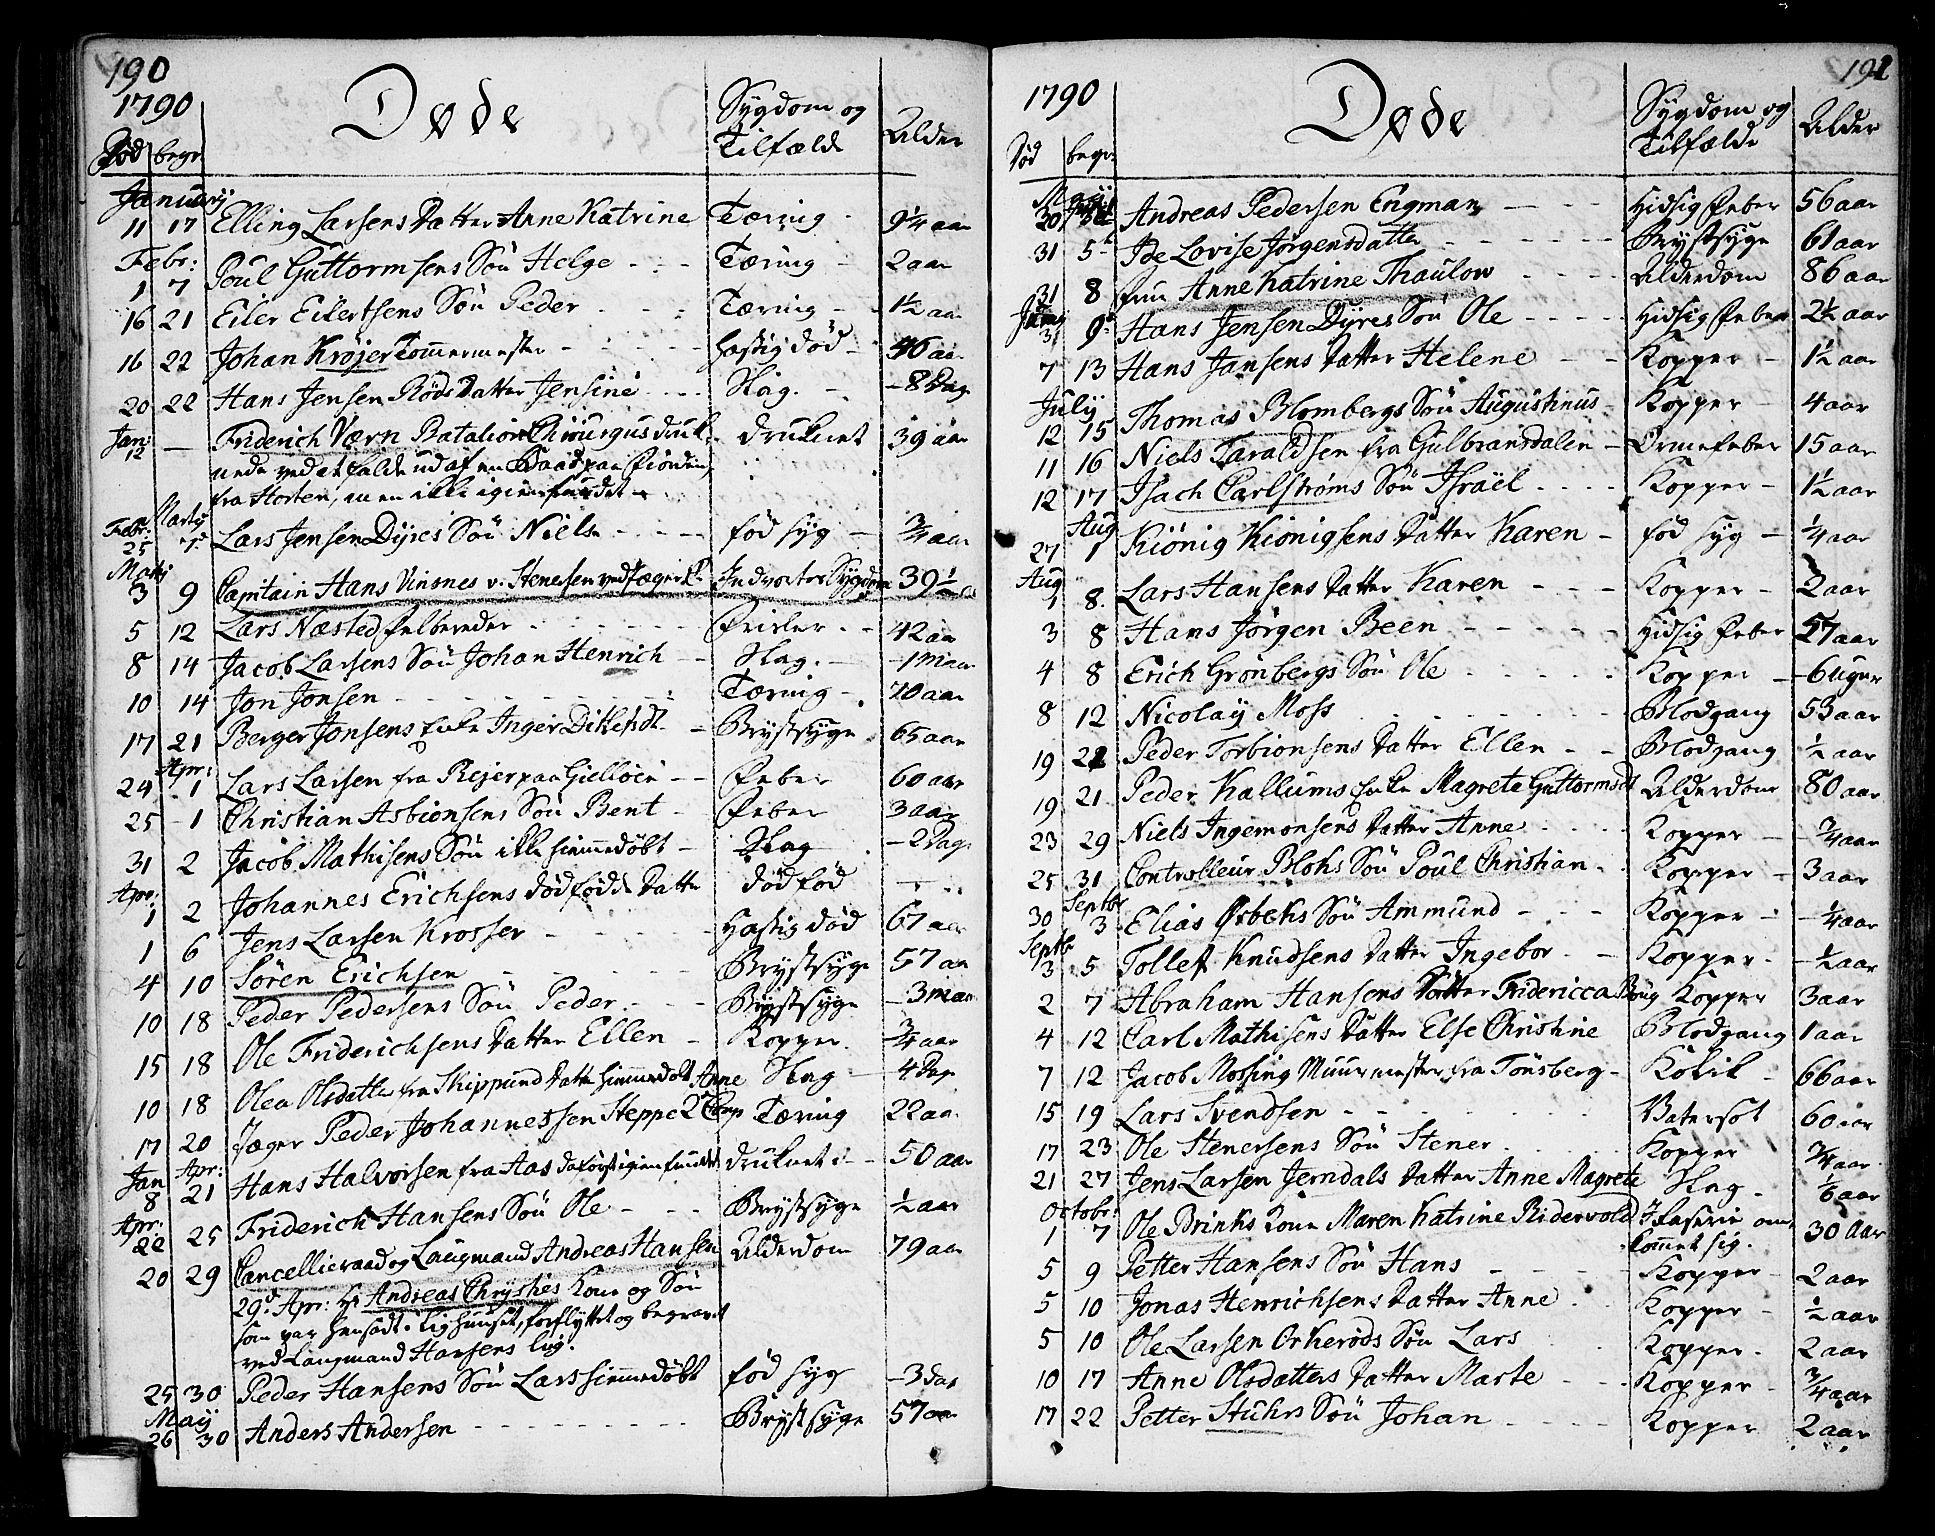 190
1790 Døde Sygdom og Tilfælde Alder
Død begr.
January
11 17 Elling Larsens Datter Anne Katrine Tæring 9 1/4 aar
Febr:
1 7 Poul Guttormsens Søn Helge Tæring 2 aar
16 21 Eiler Eilertsens Søn Peder Tæring 1 1/2 aar
16 22 Johan Krøjer Tommermester hastig død 46 aar
20 22 Hans Jensen Røds Datter Jensine Slag 8 Dag
Jan: 12 — Friderich Værn Batalions Chirurgus druk- druknet 39 aar
nede ved at falde ud af en Baad paa Fiorden,
fra Horten, men ikke igienfundet
Marty
Febr: 25 7 Lars Jensen Dyres Søn Niels fød syg 3/4 aar
Martj
3 9 Capitain Hans Vinsnes v. Stenersen ved Jæger C. Indvortes Sygdom 39 1/2 a
5 12 Lars Næsted Felbereder 42 aar
8 14 Jacob Larsens Søn Johan Henrich Slag. 1 maan
10 14 Jon Jonsen Tæring 70 aar
17 21 Berger Jonsens Enke Inger Ditlefsdt Brystsyge 65 aar
Apr:
24 1 Lars Larsen fra Rejer paa Gielløen Feber 60 aar
25 1 Christian Asbionsens Søn Bent Feber 3 aar
31 2 Jacob Mathisens Søn ikke hiemmedøbt Slag 2 Dag
Apr:
1 2 Johannes Erichsens dødfødde Datter død fød
1 6 Jens Larsen Krosser Hastig død 67 aar
4 10 Søren Erichsen Brystsyge 57 aar
10 18 Peder Pedersens Søn Peder Brystsyge 3 maan
15 18 Ole Friderichsens Datter Ellen Kopper 3/4 aar
10 18 Olea Olsdatter fra Skippund Datter hiemmedøbt Anne Slag 4 Dage
17 20 Jæger Peder Johannessen Steppe 2d Comp Tæring 22 aar
Jan Apr:
8 21 Hans Halvorsen fra Aas da først igienfundet druknet 50 aar
Apr:
22 25 Friderich Hansens Søn Ole Brystsyge 1/2 aar
20 29 Cancellieraad og Laugmand Andreas Hansen Alderdom 79 aar
29d Apr: Hr Andreas Chrysties Kone og Søn
som var hensadt i Liighuuset, forflyttet og begravet
ved Laugmand Hansens Liig.
25 30 Peder Hansens Søn Lars hiemmedøbt fød syg 3 dag
May
26 30 Anders Andersen Brystsyge 57 aar
191
1790 Døde Sygdom og Tilfælde Alder
Død begr:
30 Andreas Pedersen Engman Hidsig Feber 56 aar
31 5 Ide Lovise Jørgensdatter Brystsyge 61 aar
31 8 Frue Anne Katrine Thaulow Alderdom 86 aar
Juny
3 9 Hans Jensen Dyres Søn Ole Hidsig Feber 2 1/2 aar
7 13 Hans Jansens Datter Helene Kopper 1 1/2 aar
July
12 15 Thomas Blombergs Søn Augustinus Kopper 4 aar
11 16 Niels Taraldsen fra Gulbransdalen Ormefeber 15 aar
12 17 Isach Carlstrøms Søn Israël Kopper 1 1/2 aar
Aug
27 1 Kiönig Kionigsens Datter Karen fød syg 1/4 aar
Aug
1 8. Lars Hansens Datter Karen Kopper 2 aar
3 8 Hans Jørgen Been Hidsig Feber 57 aar
4 8 Erich Grønbergs Søn Ole Kopper 6 uger
8 12 Nicolaÿ Moss Blodgang 53 aar
19 21 Peder Torbionsens Datter Ellen Blodgang 1/2 aar
19 21 Peder Kallums Enke Magrete Guttormsdt Alderdom 80 aar
23 29 Niels Ingemonsens Datter Anne Kopper 3/4 aar
25 31 Controlleur Blohs Søn Poul Christian Kopper 3 aar
Septbr
30 3 Elias Ørbeks Søn Ammund Kopper 1/4 aar
Septbr
3 5 Tollef Knudsens Datter Ingebor Kopper 1/2 aar
2 7 Abraham Hansens Datter Fridericca Kopper 3 aar
4 12 Carl Mathisens Datter Else Christine Blodgang 1 aar
7 12 Jacob Mossing Muurmester fra Tønsberg Kolik 66 aar
15 19 Lars Svendsen Vatersot 60 aar
17 23 Ole Stenersens Søn Stener Kopper 3/4 aar
21 27 Jens Larsen Jerndals Datter Anne Magrete Slag 1/6 aar
Octobr:
1 7 Ole Brinks Kone Maren Katrine Ridervold I Raserie om- 30 aar
kommet sig.
5 9 Petter Hansens Søn Hans Kopper 2 aar
5 10 Jonas Henrichsens Datter Anne Kopper 1/2 aar
5 10 Ole Larsen Orkerøds Søn Lars Kopper 2 aar
10 17 Anne Olsdatters Datter Marte Kopper 3/4 aar
17 22 Petter Stuhrs Søn Johan Kopper 2 aar